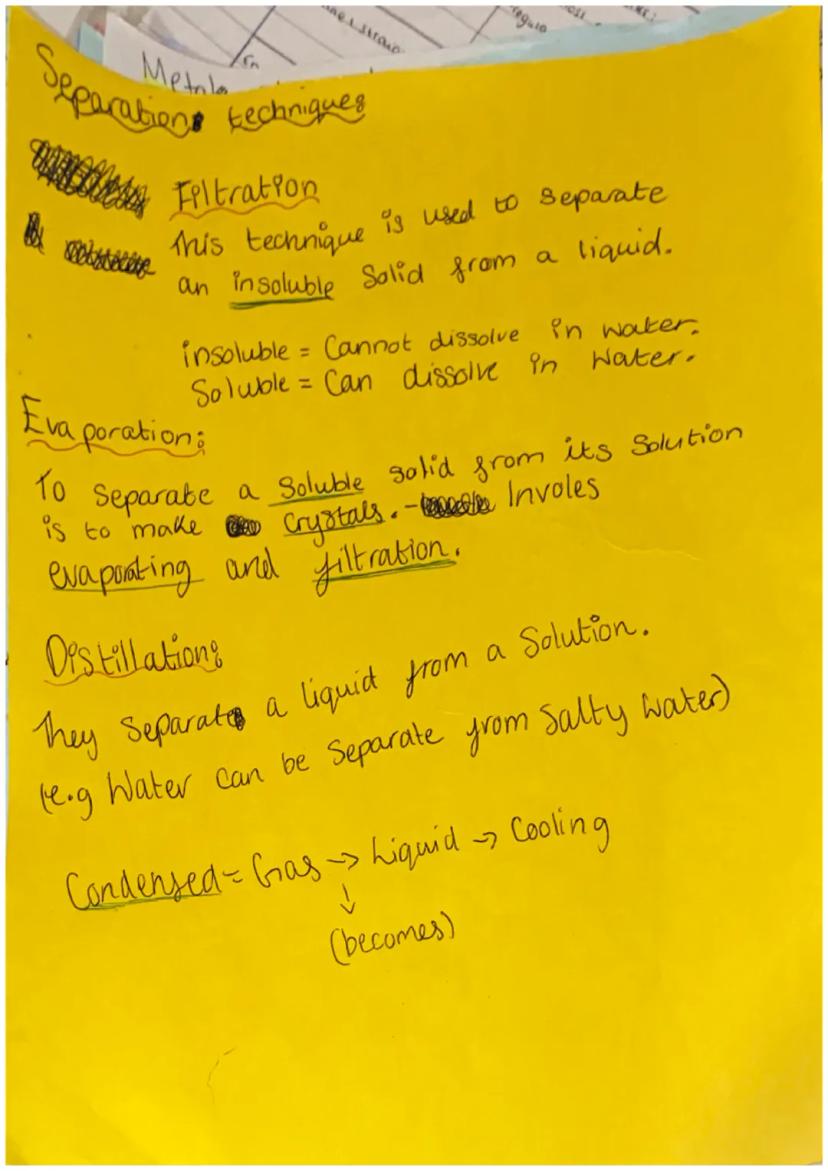 Metals
Separation techniques
Filtration
This technique is used to separate
an insoluble solid from a liquid.
insoluble = Cannot dissolve in water.
Soluble = Can dissolve in water.
Evaporation:
To separate a Soluble solid from its Solution
is to make Crystals. - Involes
evaporating and filtration.
Distillation:
They separate a liquid from a Solution.
(e.g Water can be separate from Salty water)
Condensed = Gas → Liquid → Cooling
↓
(becomes)